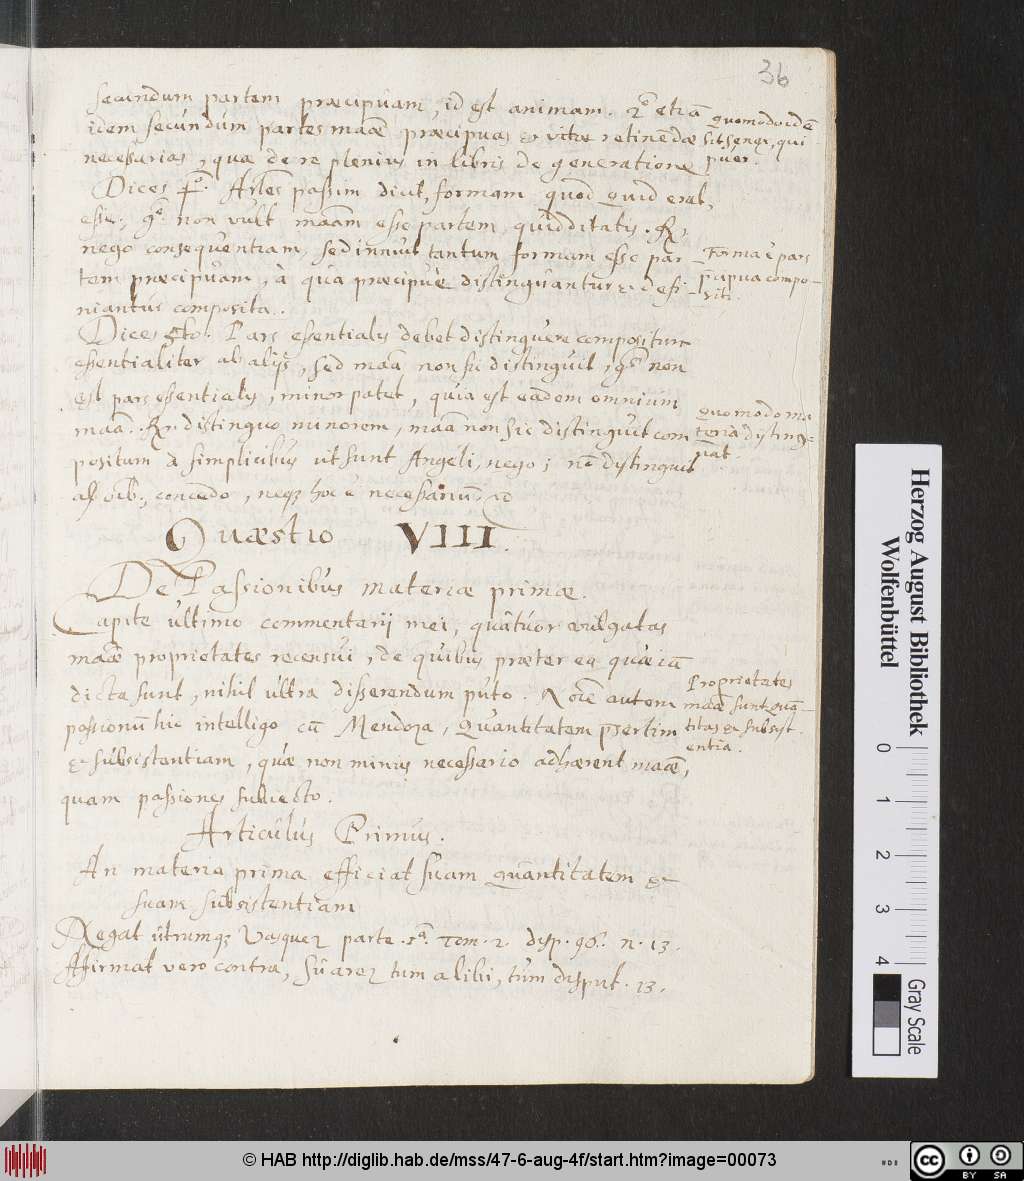 36
secundum partem præcipuam, id est animam. etiā
idem secundum partes maæ præcipuas & vitæ retinendæ
necessarias, qua de re plenius in libris de generatione
quomodo idē
sit senex, qui
puer.
Dices Artles passim dicit, formam quod quid erat,
esse; non vult maām esse partem quidditatis. R;
nego consequentiam, sed innuit tantum formam esse par
tem præcipuam, à qua præcipuè distinguantur & defi-
niantur composita.
Forma ē pars
compo-
siti.
Dices Pars essentialis debet distinguere compositum
essentialiter ab alijs, sed maā non sic distinguit, non
est pars essentialis, minor patet, quia est eadem omnium
maā. Rn distinguo minorem, maā non sic distinguit com
positum à simplicibus ut sunt Angeli, nego; distinguit
ab concedo, neq; hoc ē necessarium
quomodo ma
teria disting-
uat.
Quæstio VIII.
De Passionibus materiæ primæ.
Capite ultimo commentarij mei, quatuor vulgatas
maæ proprietates recensui, de quibus præter ea quæ iā
dicta sunt, nihil ultra disserendum puto. autem
passionū hic intelligo cū Mendoza, Quantitatem
& subsistentiam, quæ non minus necessario adhærent maæ,
quam passiones subiecto.
Proprietates
maæ sunt quā-
titas & subsist-
entia.
Articulus Primus.
An materia prima efficiat suam quantitatem &
suam subsistentiam
Negat utrumq; Vasquez parte .1ª. Tom. 2. disp. 96. n. 13.
Affirmat vero contra, Suarez tum alibi, tum disput. 13.
Herzog August Bibliothek
Wolfenbüttel
0 1 2 3 4
Gray Scale
© HAB http://diglib.hab.de/mss/47-6-aug-4f/start.htm?image=00073
cc BY SA